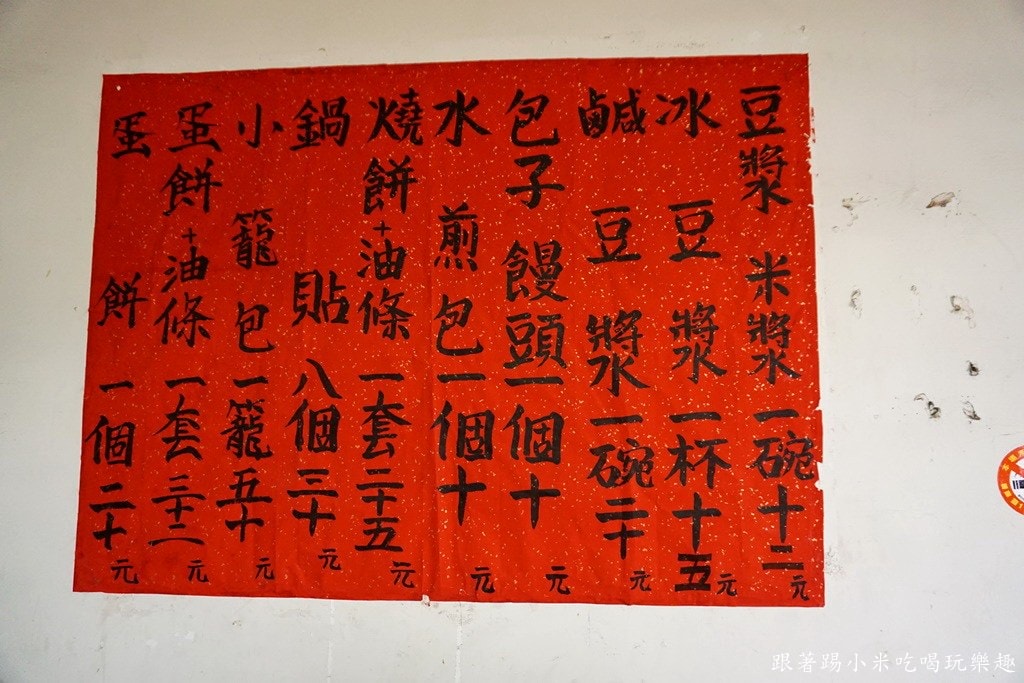 豆漿 米漿 一碗十二元
冰豆漿一杯十五元
鹹豆漿一碗二十元
包子 饅頭一個十元
水煎包一個十元
燒餅+油條一套二十五元
鍋貼八個三十元
小籠包一籠五十元
蛋餅+油條一套三十二元
蛋餅一個二十元
跟著踢小米吃喝玩樂趣